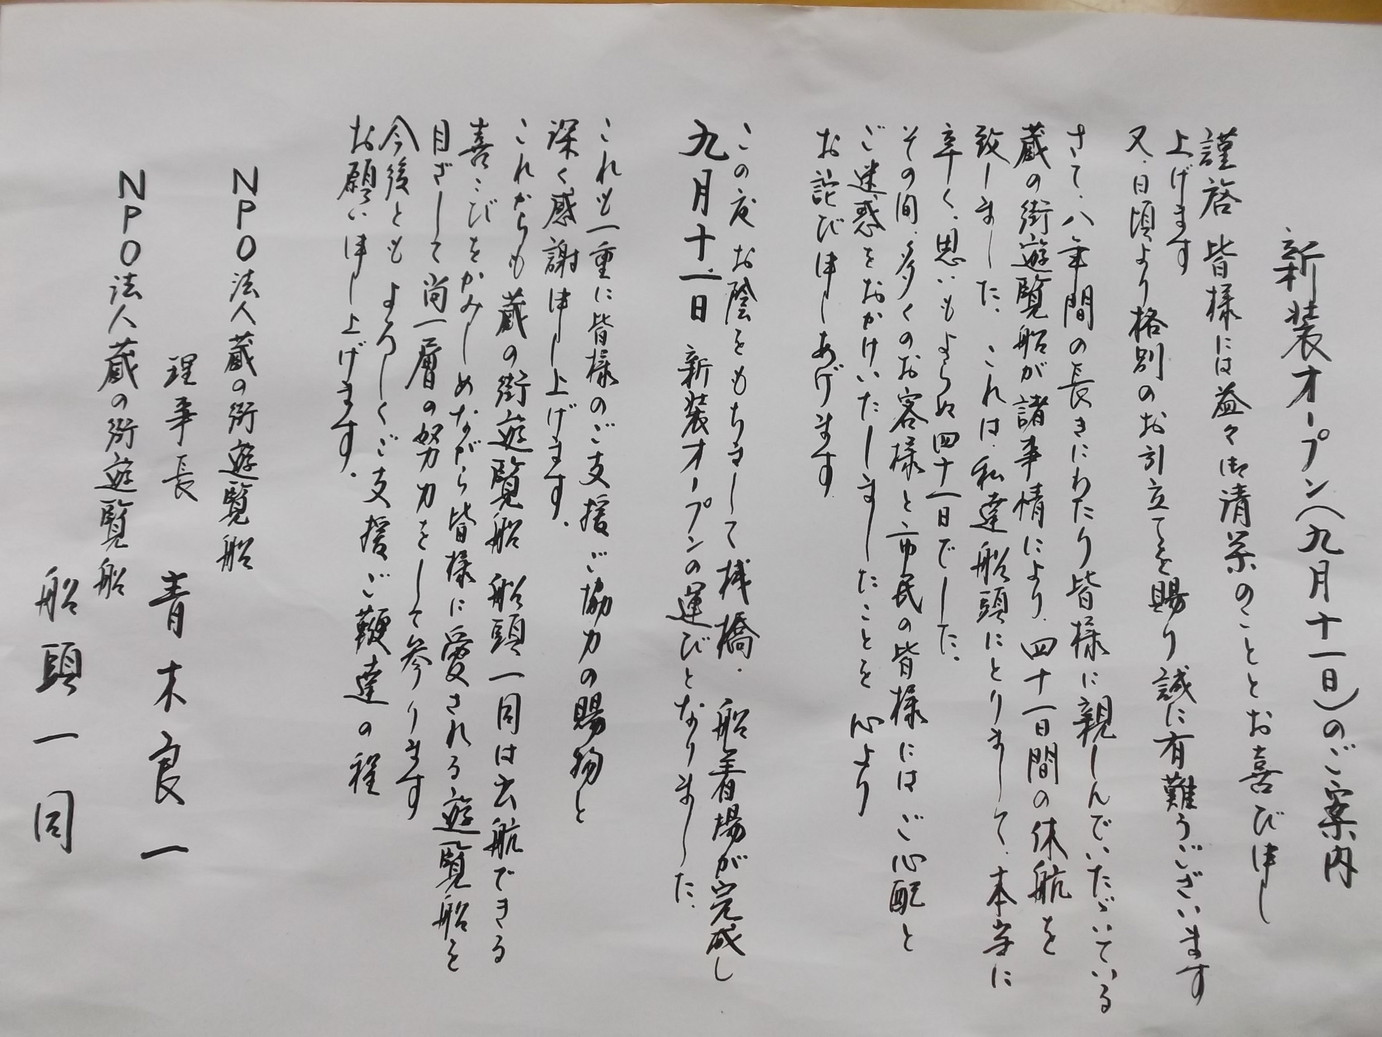 新装オープン(九月十一日)のご案内
謹啓 皆様には益々御清栄のこととお喜び申し
上げます
又、日頃より格別のお引立てを賜り誠に有難うございます
さて、八年間の長きにわたり皆様に親しんでいたゞいている
蔵の街遊覧船が諸事情により、四十一日間の休航を
致しました。これは、私達船頭にとりまして、本当に
辛く、思いもよらぬ四十一日でした。
その間、多くのお客様と市民の皆様には ご心配と
ご迷惑をおかけいたしましたことを 心より
お詫び申しあげます
この度 お陰をもちまして 桟橋、船着場が完成し
九月十一日 新装オープンの運びとなりました。
これも一重に皆様のご支援ご協力の賜物と
深く感謝申し上げます。
これからも 蔵の街遊覧船 船頭一同は出航できる
喜こびをかみしめながら皆様に愛される遊覧船を
目ざして 尚一層の努力をして参ります
今後とも よろしくご支援ご鞭達の程
お願い申し上げます。
NPO法人蔵の街遊覧船
理事長 青木良一
NPO法人蔵の街遊覧船
船頭一同